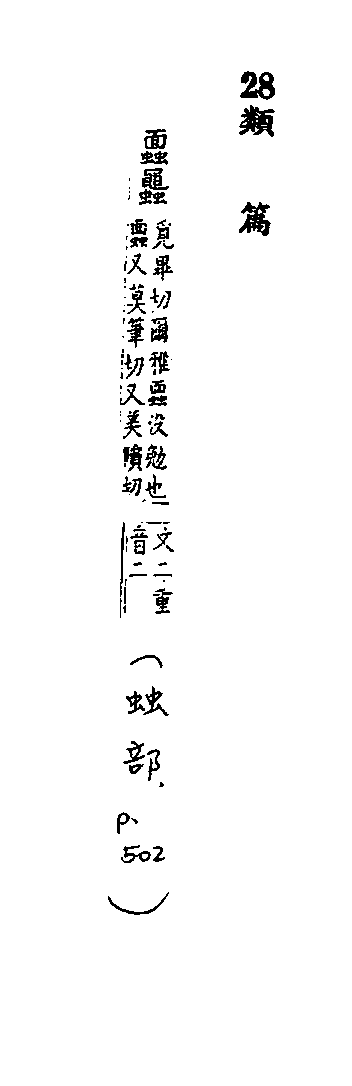 28類篇
𧖅䵶
覓畢切爾雅𧖅沒勉也
𧖅又莫筆切又美隕切
文二重
音二
(䖵部、p.502)